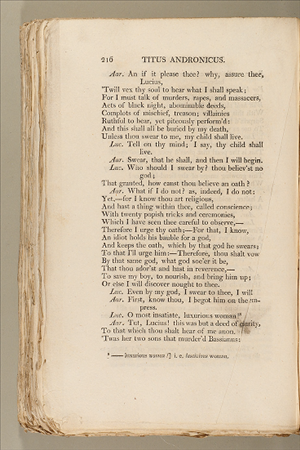 216 TITUS ANDRONICUS.
Aar. An if it please thee? why, assure thee,
Lucius,
'Twill vex thy soul to hear what I shall speak;
For I must talk of murders, rapes, and massacers,
Acts of black night, abominable deeds,
Complots of mischief, treason; villainies
Ruthful to hear, yet piteously perform'd:
And this shall all be buried by my death,
Unless thou swear to me, my child shall live.
Luc. Tell on thy mind; I say, thy child shall
live.
Aar. Swear, that he shall, and then I will begin.
Luc. Who should I swear by? thou believ'st no
god;
That granted, how canst thou believe an oath?
Aar. What if I do not? as, indeed, I do not:
Yet,—for I know thou art religious,
And hast a thing within thee, called conscience;
With twenty popish tricks and ceremonies,
Which I have seen thee careful to observe,—
Therefore I urge thy oath;—For that, I know,
An idiot holds his bauble for a god,
And keeps the oath, which by that god he swears;
To that I'll urge him:—Therefore, thou shalt vow
By that same god, what god soe'er it be,
That thou ador'st and hast in reverence,—
To save my boy, to nourish, and bring him up;
Or else I will discover nought to thee.
Luc. Even by my god, I swear to thee, I will
Aar. First, know thou, I begot him on the em-
press.
Luc. O most insatiate, luxurious woman!
Aar. Tut, Lucius! this was but a deed of charity,
To that which thou shalt hear of me anon.
'Twas her two sons that murder'd Bassianus:
— luxurious woman!] i. e. lascivious woman.